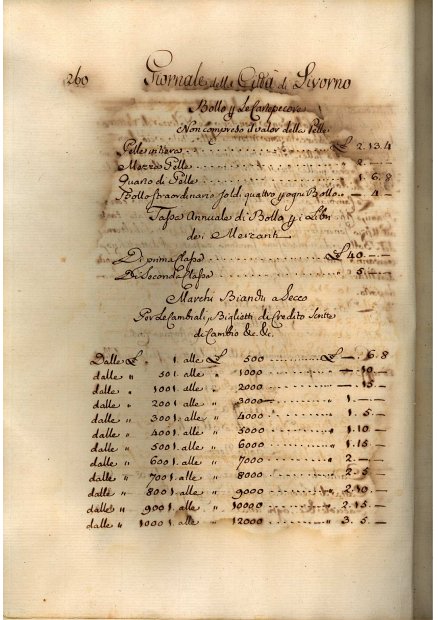 260 Giornale della Città di Livorno
Bollo p Le Cartepecore
Non compreso il valor della Pelle
Pelle intiera ₤ 2.13.4
Mezza Pelle 2.—
Quarto di Pelle 1.6.8
Bollo straordinario soldi quattro p ogni Bollo — 4 —
Tassa Annuale di Bollo p i Libri
dei Mercanti
Di prima Classe ₤ 40 — —
Di Seconda Classe 5 — —
Marchi Bianchi a Secco
Per Le Cambiali, Biglietti di Credito Scritte
di Cambio &c. &c.
Dalle ₤ 1. alle ₤ 500 ₤ —. 6.8
dalle " 501. alle " 1000 —. 10. —
dalle " 1001. alle " 2000 —. 15 —
dalle " 2001. alle " 3000 1. — —
dalle " 3001. alle " 4000 1. 5. —
dalle " 4001. alle " 5000 1.10. —
dalle " 5001. alle " 6000 1.15 —
dalle " 6001. alle " 7000 2. — —
dalle " 7001. alle " 8000 2. 5 —
dalle " 8001. alle " 9000 2.10 —
dalle " 9001. alle " 10000 2.15 —
dalle " 10001. alle " 12000 3. 5 —